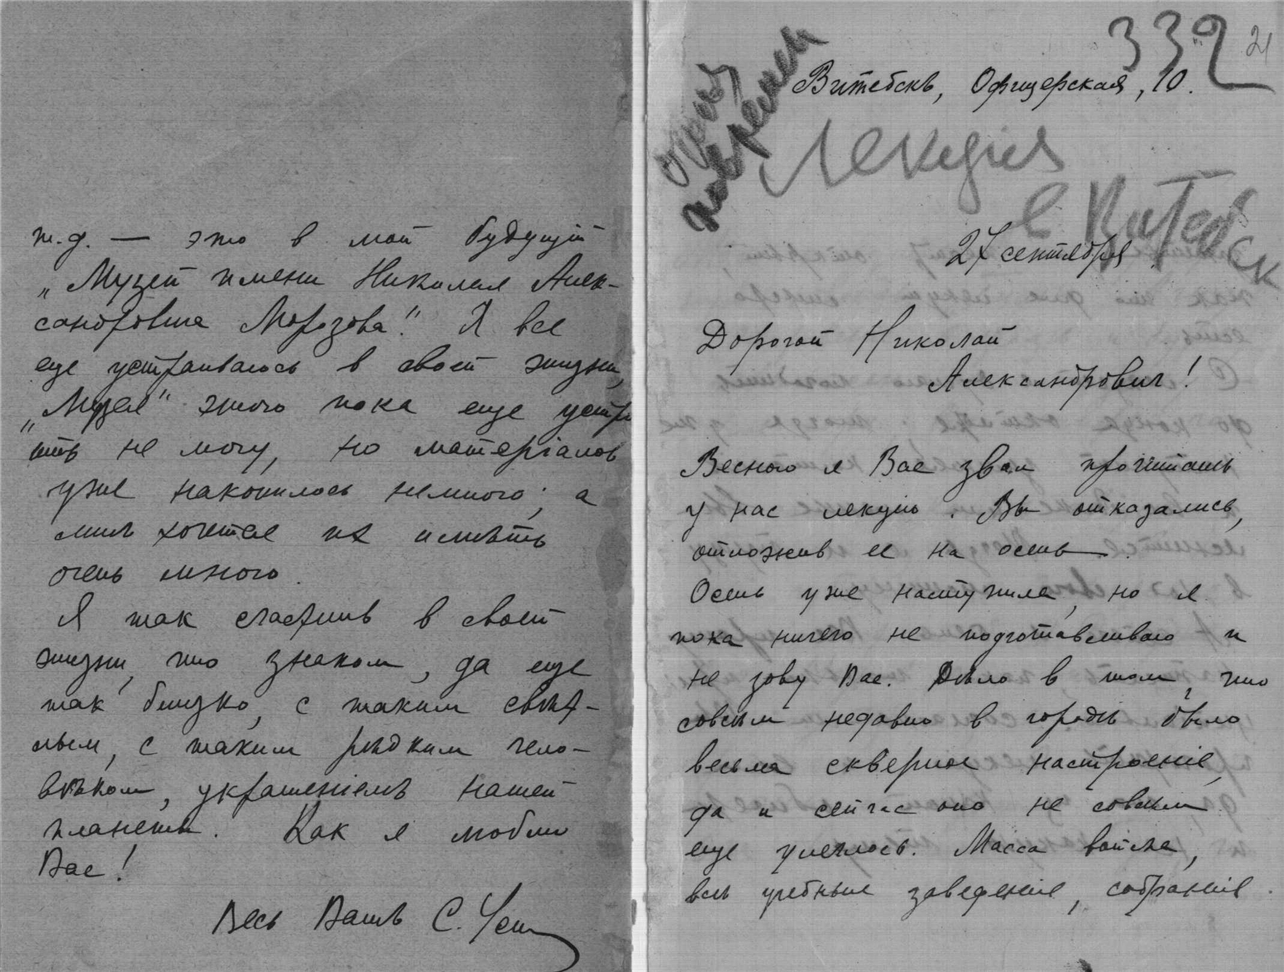 т.д. — это в мой будущій
„Музей имени Николая Алек-
сандровича Морозова“. Я все
еще устраиваюсь в своей жизни,
„Музея“ этого пока еще устро
ить не могу, но матеріалов
уже накопилось немного; а
мнѣ хочется их имѣть
очень много.
Я так счастлив в своей
жизни, что знаком, да еще
так близко, с таким свѣт-
лым, с таким рѣдким чело-
вѣком, украшеніемъ нашей
планеты. Как я люблю
Вас!
Весь Вашъ С.
332 21
Витебскъ, Офицерская, 10.
Лекція
в Витебск
27 сентября
Дорогой Николай
Александрович!
Весною я Вас звал прочитать
у нас лекцію. Вы отказались,
отложив ее на осень.
Осень уже наступила, но я
пока ничего не подготавливаю и
не зову Вас. Дѣло в том, что
совсѣм недавно в городѣ было
весьма скверное настроеніе,
да и сейчас оно не совсѣм
еще улеглось. Масса войска,
всѣ учебныя заведенія, собранія